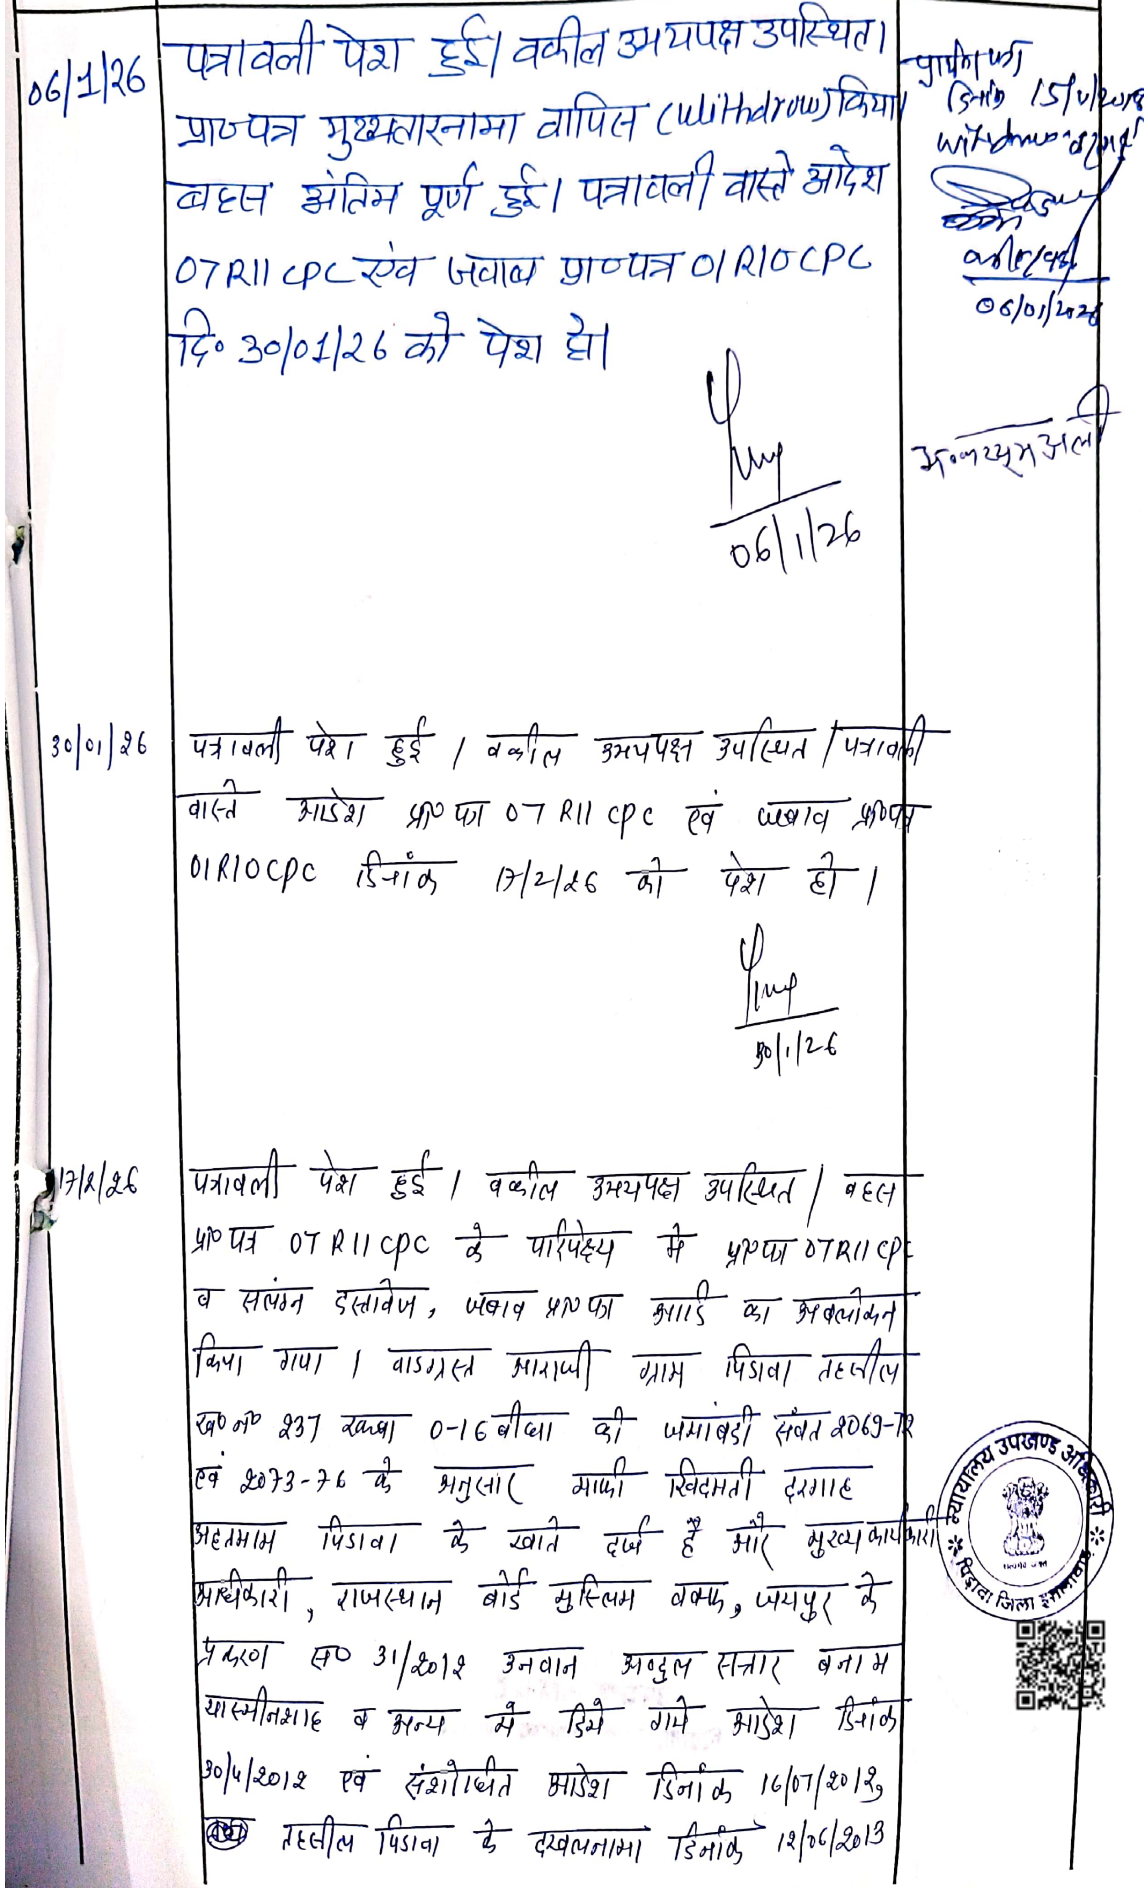 06/1/26
पत्रावली पेश हुई। वकील उभयपक्ष उपस्थित।
प्रा०पत्र मुख्यतारनामा वापिस (withdraw) किया।
बहस अंतिम पूर्ण हुई। पत्रावली वास्ते आदेश
07R11 CPC एंव जवाब प्रा०पत्र 01R10CPC
दि० 30/01/26 को पेश हो।
06/1/26
दिनांक
06/01/2026
30/01/26
पत्रावली पेश हुई। वकील उभयपक्ष उपस्थित। पत्रावली
वास्ते आदेश प्रा० पत्र 07 R11 CPC एवं जबाव प्रा०पत्र
01R10CPC दिनांक 17/2/26 को पेश हो।
30/1/26
17/2/26
पत्रावली पेश हुई। वकील उभयपक्ष उपस्थित। बहस
प्रा० पत्र 07 R11 CPC के परिपेक्ष्य में प्रा०पत्र 07R11 CPC
व सलंग्न दस्तावेज, जबाव प्रा०पत्र आदि का अवलोकन
किया गया। वादग्रस्त आराजी ग्राम पिडावा तहसील
ख० न० 237 रकबा 0-16 बीघा की जमांबदी संवत 2069-72
एवं 2073-76 के अनुसार माफी खिदमती दरगाह
अहतमाम पिडावा के खाते दर्ज है और मुख्य कार्यकारी
अधिकारी, राजस्थान बोर्ड मुस्लिम वक्फ, जयपुर के
प्रकरण स० 31/2012 उनवान अब्दुल सत्तार बनाम
यास्मीनशाह व अन्य में दिये गये आदेश दिनांक
30/4/2012 एवं संशोधीत आदेश दिनांक 16/07/2012,
तहसील पिडावा के दखलनामा दिनांक 12/06/2013
न्यायालय उपखण्ड अधिकारी
पिड़ावा जिला झालावाड़